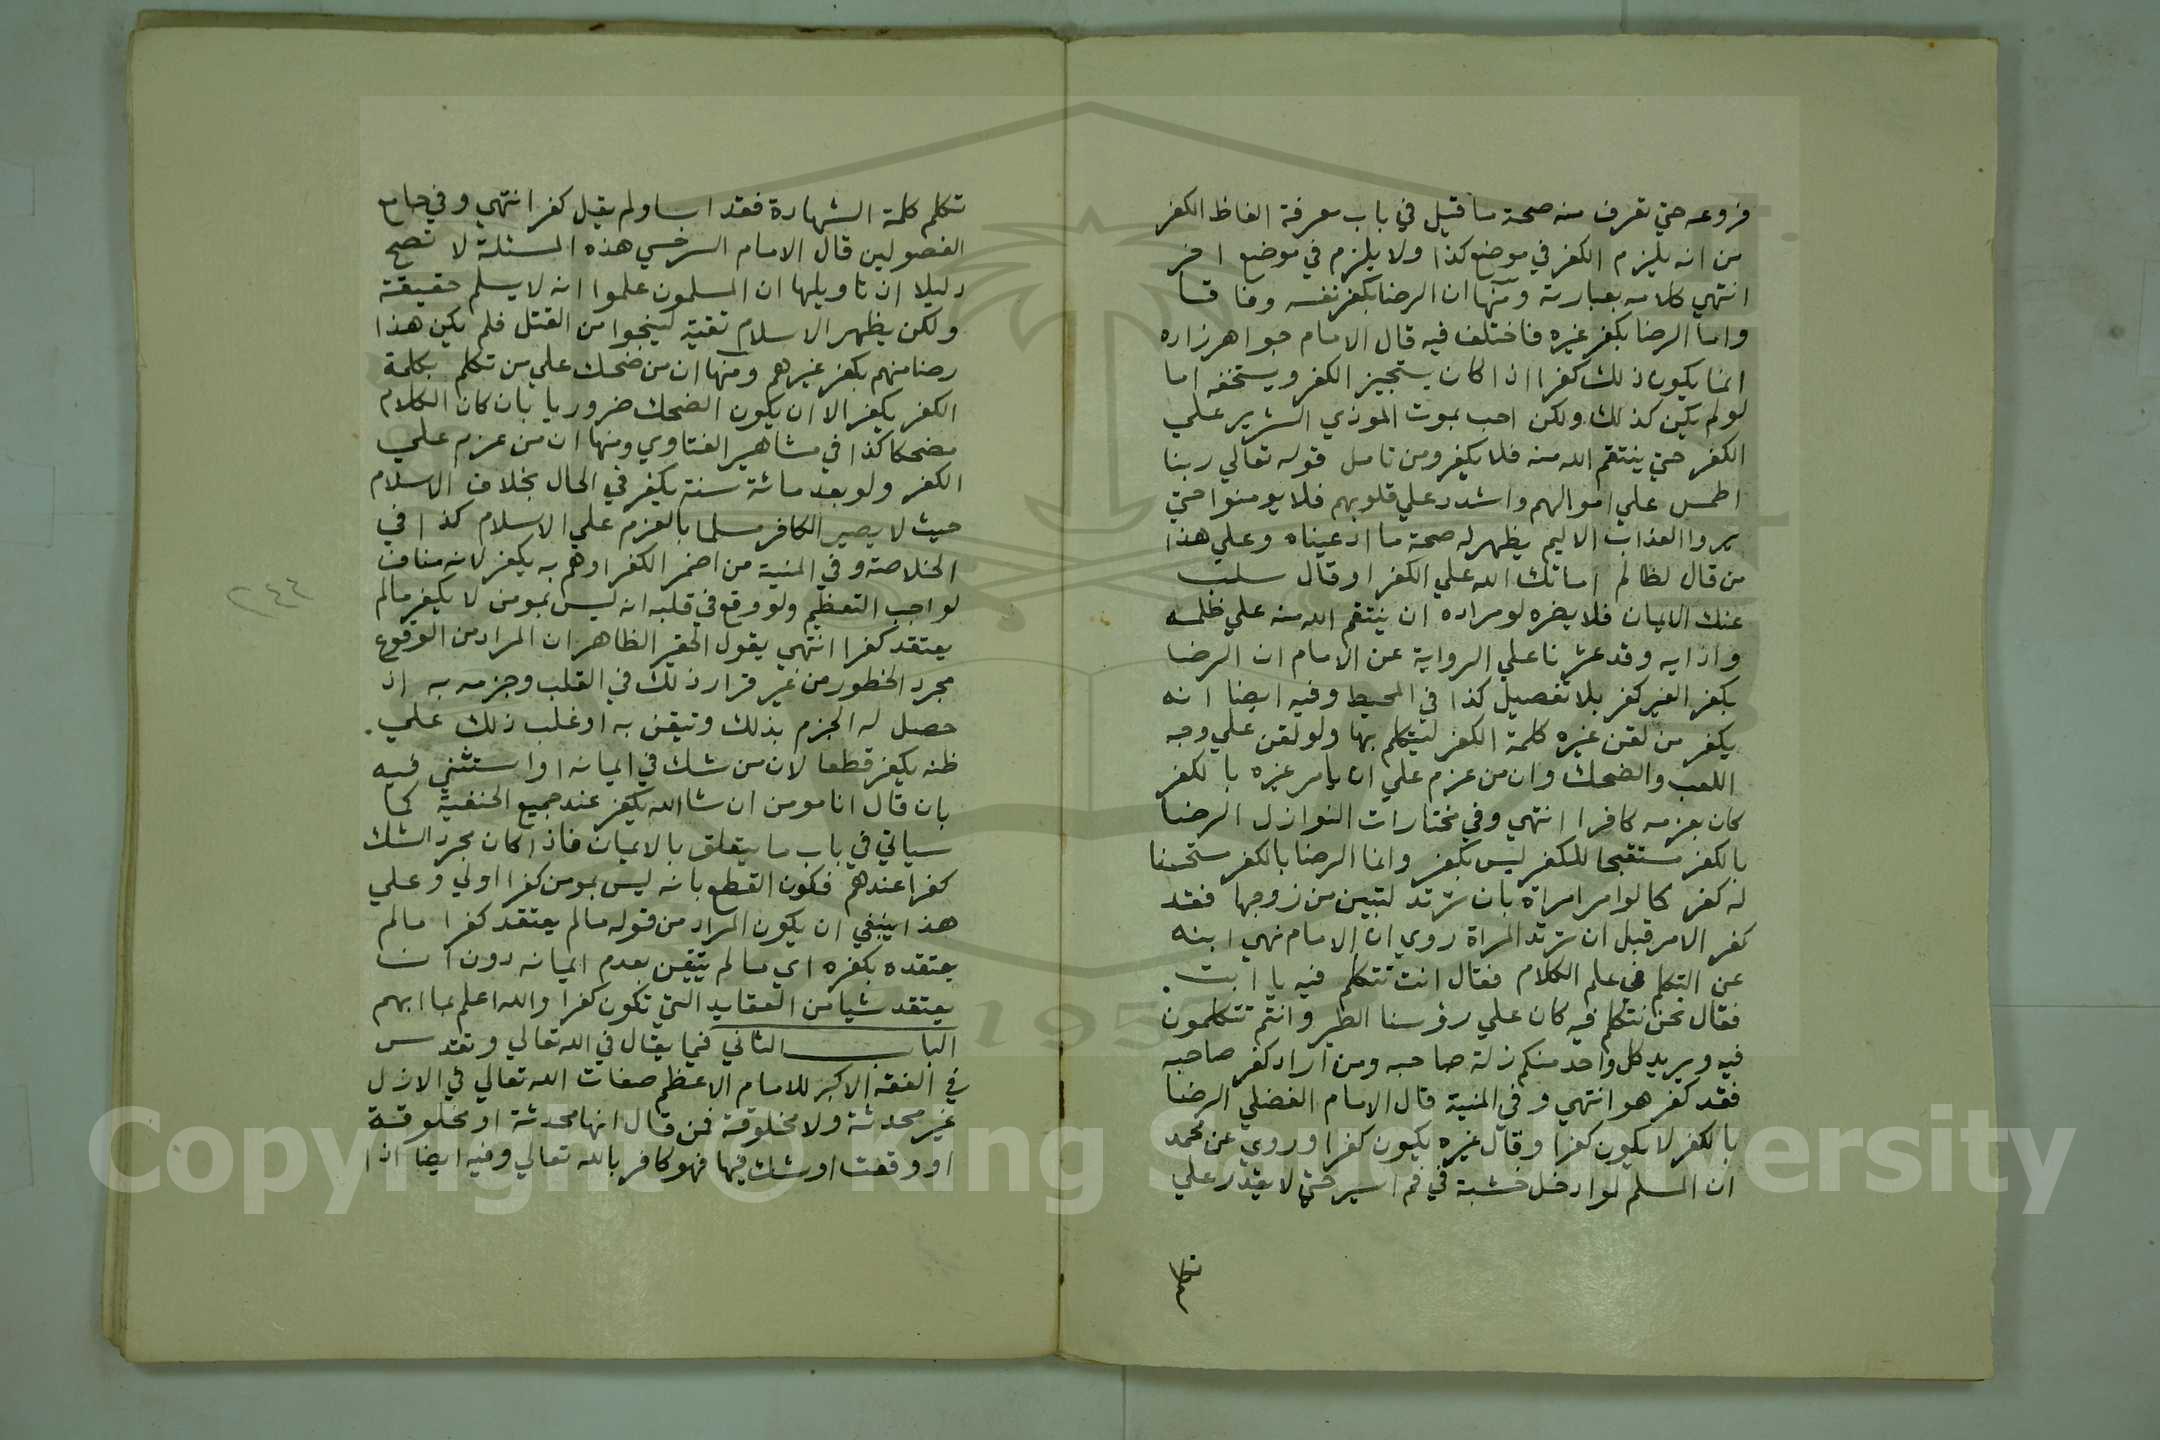 فروعه حتي تعرف منه صحة ما قيل في باب معرفة الفاظ الكفر
من انه يلزم الكفر في موضع كذا ولا يلزم في موضع اخر
انتهي كلامه بعبارته ومنها ان الرضا بكفر نفسه وفاقا
واما الرضا بكفر غيره فاختلف فيه قال الامام خواهرزاده
انما يكون ذلك كفرا اذا كان يستجيز الكفر ويستخفه اما
لو لم يكن كذلك ولكن احب بموت الموذي الشرير علي
الكفر حتي ينتقم الله منه فلا يكفر ومن تامل قوله تعالي ربنا
اطمس علي اموالهم واشدد علي قلوبهم فلا يومنوا حتي
يروا العذاب الاليم يظهر له صحة ما ادعيناه وعلي هذا
من قال لظالم اماتك الله علي الكفر او قال سلب
عنك الايمان فلا يضره لو مراده ان ينتقم الله منه علي ظلمه
واذايه وقد عثرنا علي الرواية عن الامام ان الرضا
بكفر الغير كفر بلا تفصيل كذا في المحيط وفيه ايضا انه
يكفر من لقن غيره كلمة الكفر ليتكلم بها ولو لقن علي وجه
اللعب والضحك وان من عزم علي ان يامر غيره بالكفر
كان بعزمه كافرا انتهي وفي مختارات النوازل الرضا
بالكفر مستقبحا للكفر ليس بكفر وانما الرضا بالكفر مستحسنا
له كفر كما لو امر امراة بان ترتد لتبين من زوجها فقد
كفر الامر قبل ان ترتد المراة روي ان الامام نهي ابنه
عن التكلم في علم الكلام فقال انت تتكلم فيه يا ابت
فقال نحن نتكلم فيه كان علي رؤسنا الطير وانتم تتكلمون
فيه ويريد كل واحد منكم زلة صاحبه ومن اراد كفر صاحبه
فقد كفر هو انتهي وفي المنية قال الامام الفضلي الرضا
بالكفر لا يكون كفرا وقال غيره يكون كفرا وروي عن محمد
ان المسلم لو ادخل خشبة في فم اسير حتي لا يقدر علي
تكلم
تكلم كلمة الشهادة فقد اسا ولم يقل كفر انتهي وفي جامع
الفصولين قال الامام السرخسي هذه المسئلة لا تصح
دليلا ان تاويلها ان المسلمون علموا انه لا يسلم حقيقة
ولكن يظهر الاسلام تقية لينجوا من القتل فلم يكن هذا
رضا منهم بكفر غيرهم ومنها ان من ضحك علي من تكلم بكلمة
الكفر يكفر الا ان يكون الضحك ضروريا بان كان الكلام
مضحكا كذا في مشاهير الفتاوي ومنها ان من عزم علي
الكفر ولو بعد مائة سنة يكفر في الحال بخلاف الاسلام
حيث لا يصير الكافر مسلما بالعزم علي الاسلام كذا في
الخلاصة وفي المنية من اضمر الكفر اوهم به يكفر لانه مناف
لواجب التعظيم ولو وقع في قلبه انه ليس بمومن لا يكفر مالم
يعتقد كفرا انتهي يقول الحقير الظاهر ان المراد من الوقوع
مجرد الخطور من غير قرار ذلك في القلب وجزمه به اذ
حصل له الجزم بذلك وتيقن به او غلب ذلك علي
ظنه يكفر قطعا لان من شك في ايمانه او استثني فيه
بان قال انا مومن ان شا الله يكفر عند جميع الحنفية كما
سياتي في باب ما يتعلق بالايمان فاذا كان مجرد الشك
كفرا عندهم فكون القطع بانه ليس بمومن كفرا اولي وعلي
هذا ينبغي ان يكون المراد من قوله مالم يعتقد كفرا مالم
يعتقده بكفره اي مالم يتيقن بعدم ايمانه دون ان
يعتقد شيا من العقايد التي تكون كفرا والله اعلم بما ابهم
الباب الثاني فيما يقال في الله تعالي وتقدس
في الفقه الاكبر للامام الاعظم صفات الله تعالي في الازل
غير محدثة ولا مخلوقة فمن قال انها محدثة او مخلوقة
او وقف او شك فيها فهو كافر بالله تعالي وفيه ايضا اذا
٢٤٤
1957
Copyright © King Saud University